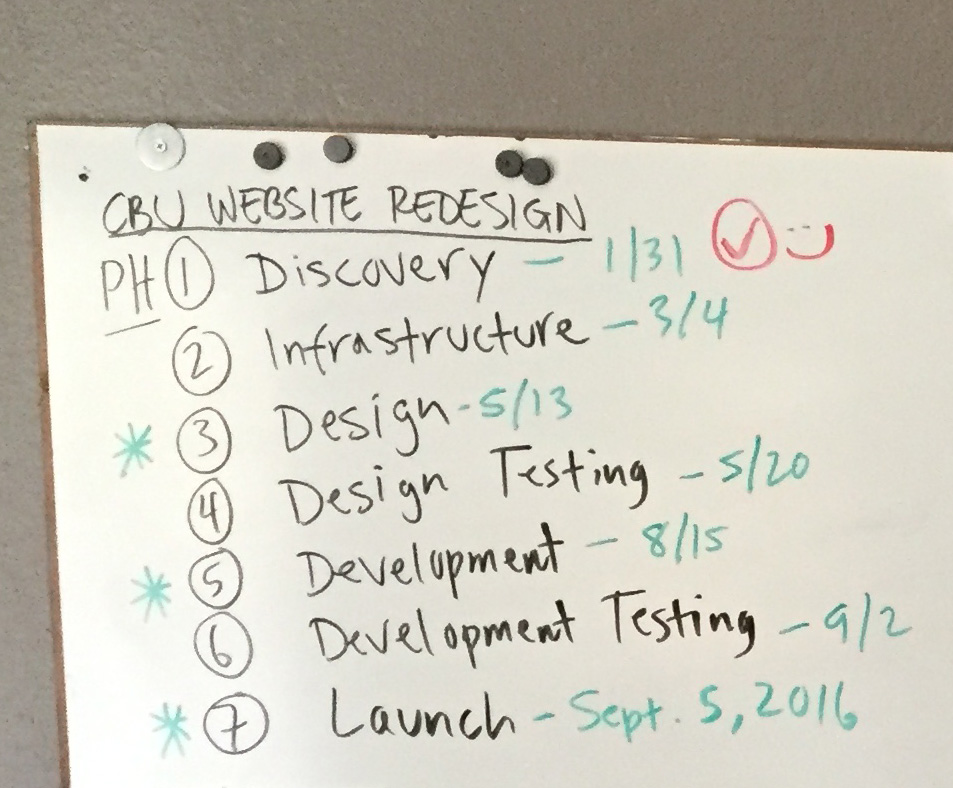 CBU WEBSITE REDESIGN
PH 1 Discovery - 1/31
2 Infrastructure - 3/4
* 3 Design - 5/13
4 Design Testing - 5/20
* 5 Development - 8/15
6 Development Testing - 9/2
* 7 Launch - Sept. 5, 2016